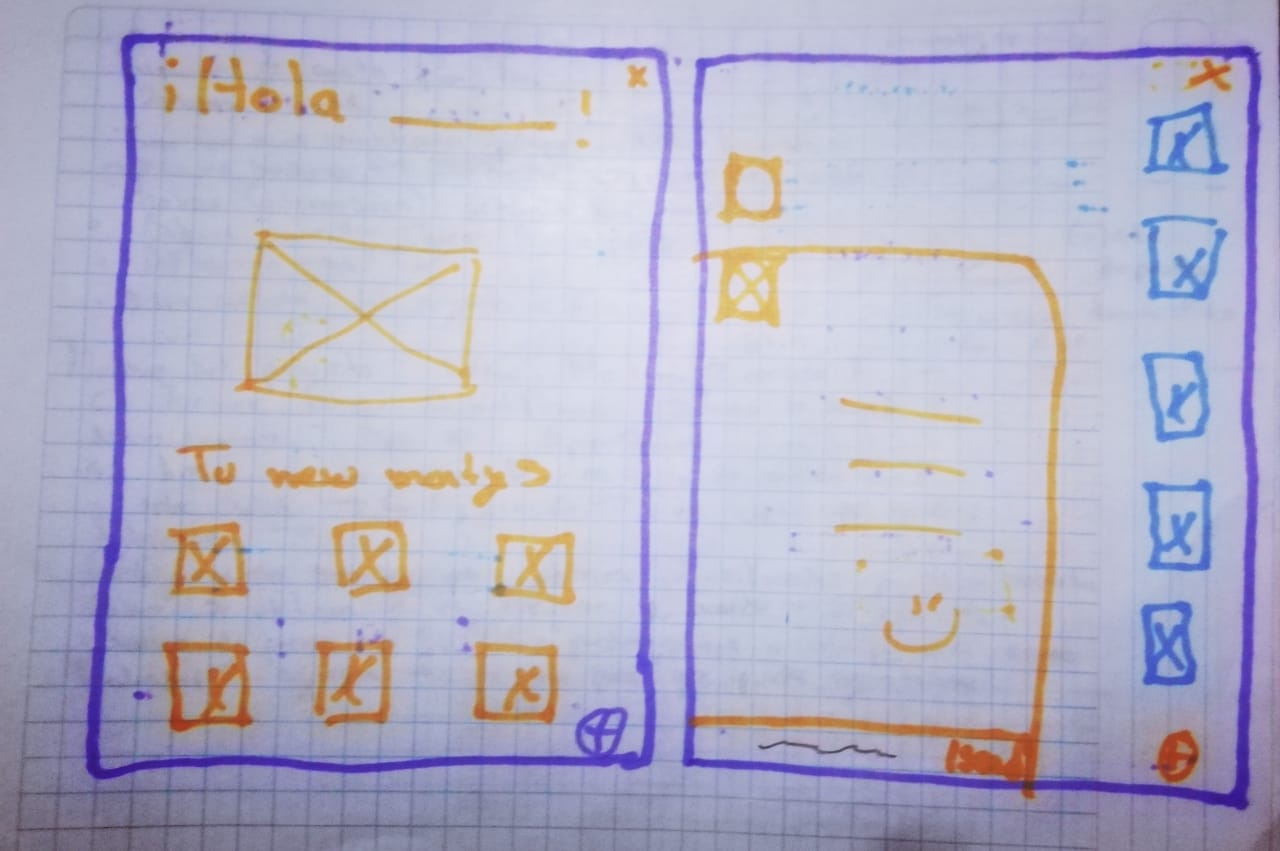 ¡Hola ____!
Tu new matys
Send